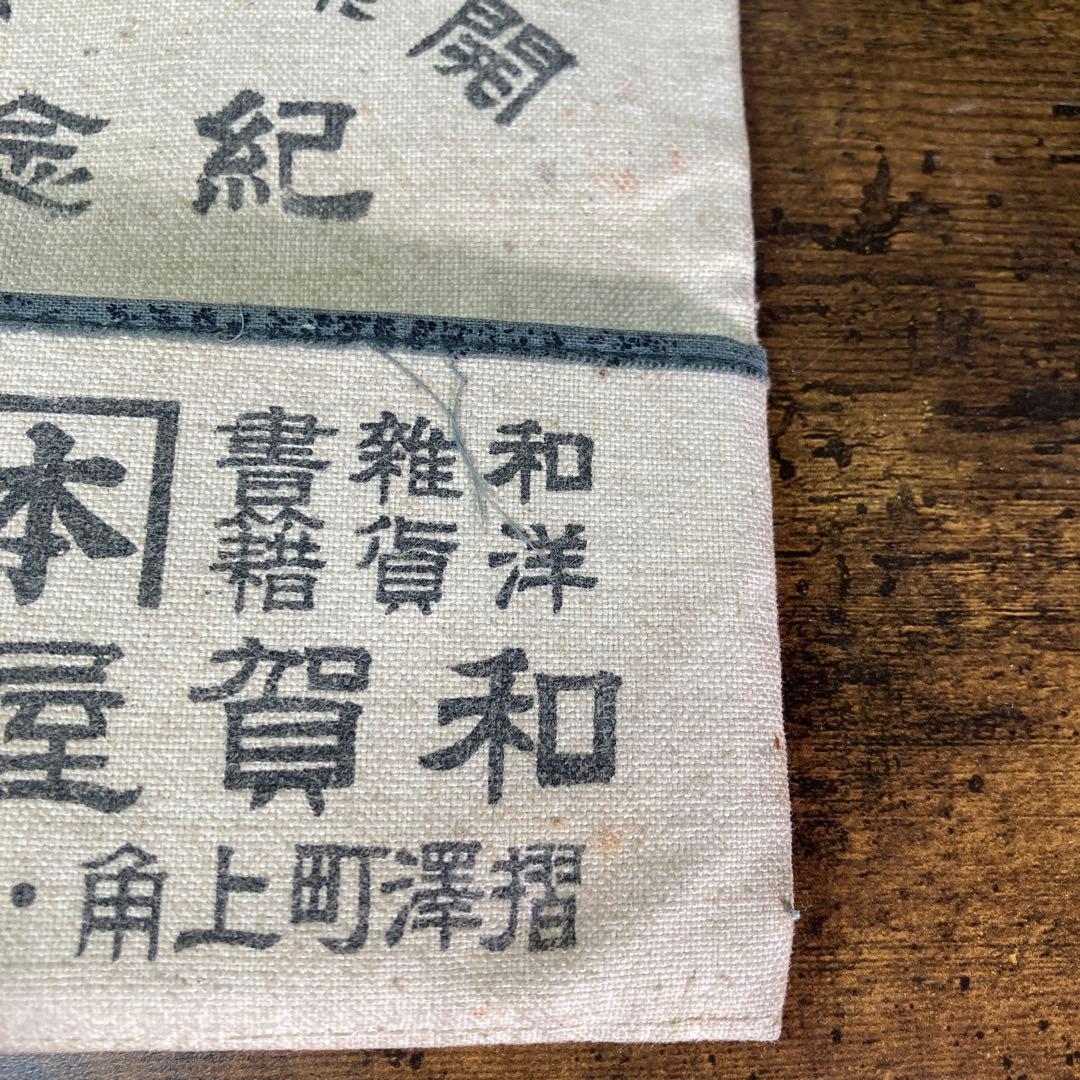 開
紀念
和洋
雑貨
書籍
本
和賀屋
摺澤町上角・